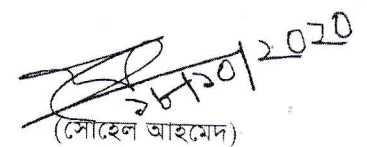 ২৮/১০/২০২০
(সোহেল আহমেদ)